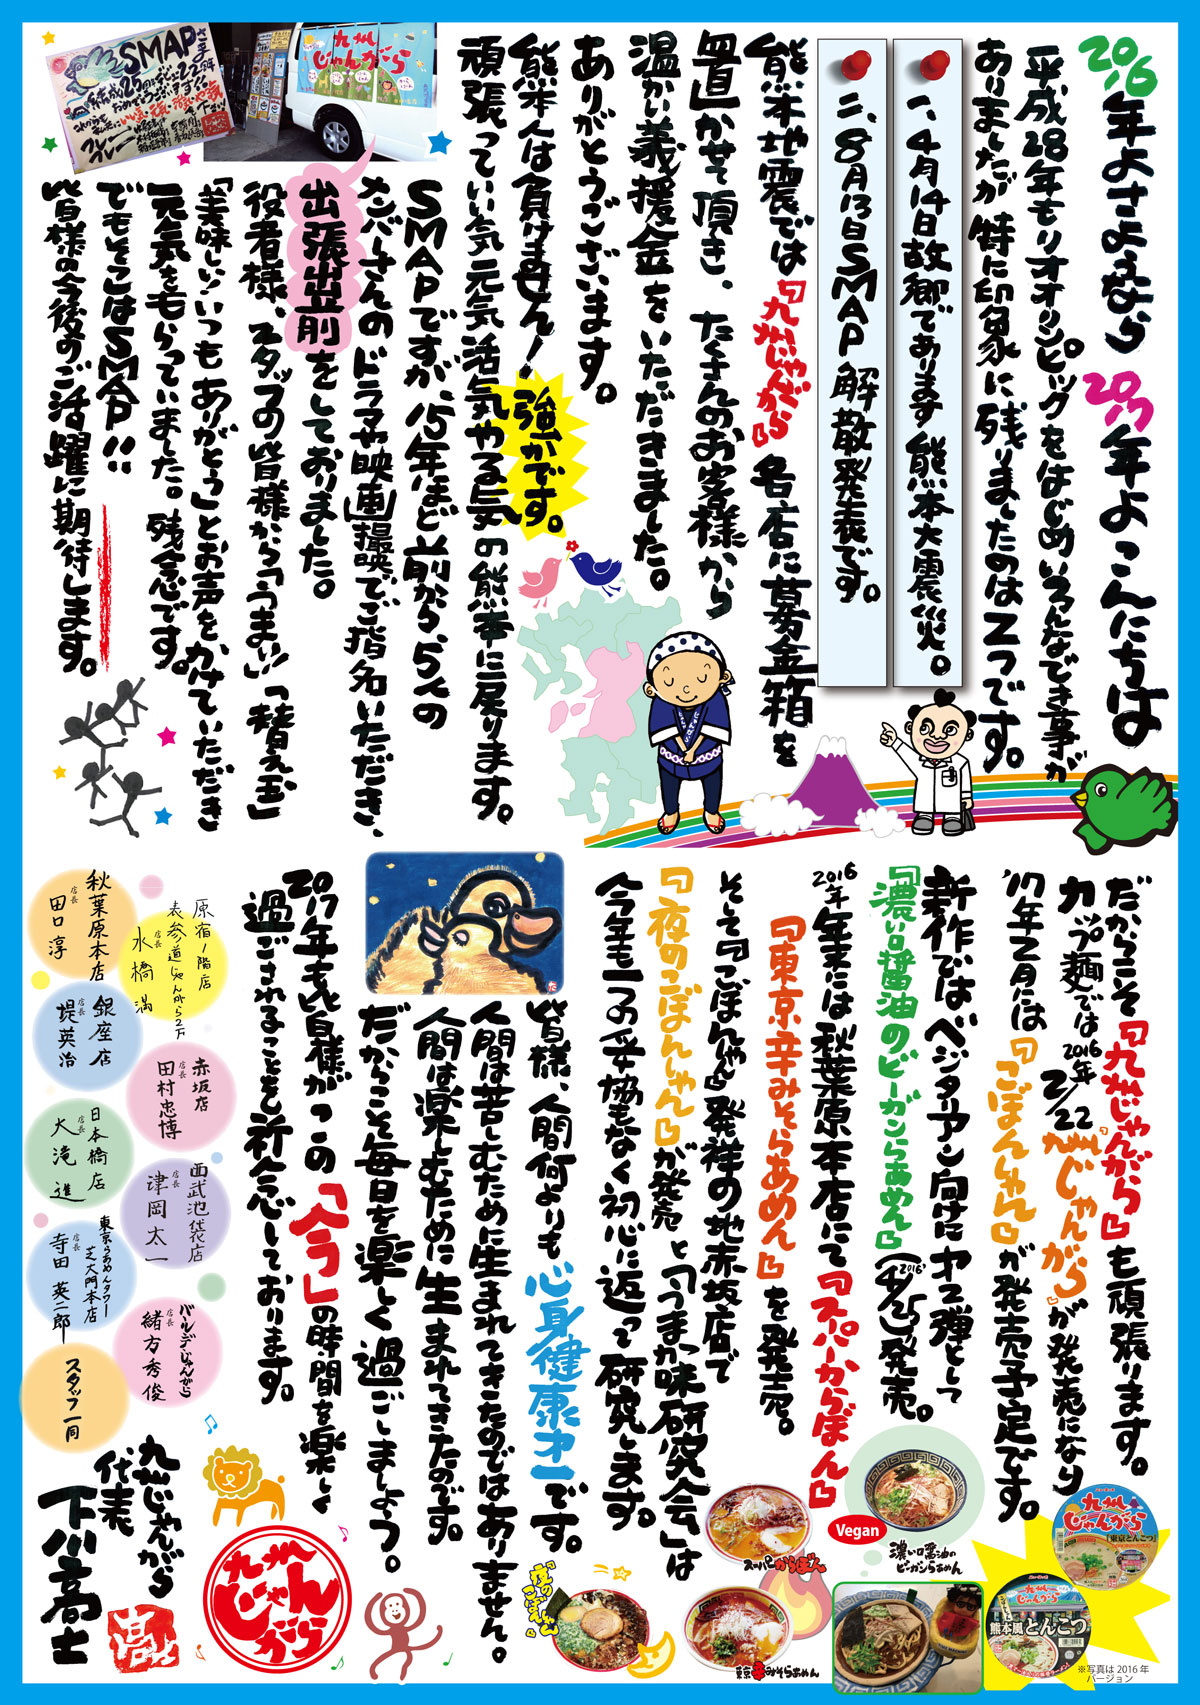 2016年よさようなら 2017年よこんにちは
平成28年もリオオリンピックをはじめいろんなでき事が
ありましたが特に印象に残りましたのは2つです。
一、4月14日故郷であります熊本大震災。
二、8月13日SMAP解散発表です。
熊本地震では『九州じゃんがら』各店に募金箱を
置かせて頂き、たくさんのお客様から
温かい義援金をいただきました。
ありがとうございます。
熊本人は負けません!強かです。
頑張っている気元気活気やる気の熊本に戻ります。
SMAPですが、15年ほど前から、5人の
メンバーさんのドラマや映画撮影でご指名いただき、
出張出前をしておりました。
役者様、スタッフの皆様から「うまい!」「替え玉」
「美味しい!いつもありがとう」とお声をかけていただき
元気をもらっていました。残念です。
でもそこはSMAP!!
皆様の今後のご活躍に期待します。
SMAP
九州
じゃんがら
だからこそ『九州じゃんがら』も頑張ります。
カップ麺では2016年2/22『九州じゃんがら』が発売になり
'17年2月には『こぼんしゃん』が発売予定です。
新作ではベジタリアン向けに才2弾として
『濃い口醤油のビーガンらあめん』(2016' 4/25)発売。
2016年年末には秋葉原本店にて『スーパーからぼん』
『東京辛みそらあめん』を発売。
そして『こぼんしゃん』発祥の地赤坂店で
『夜のこぼんしゃん』が発売と「うまか味研究会」は
今年も一つの妥協もなく初心に返って研究します。
皆様、人間何よりも心身健康才一です。
人間は苦しむために生まれてきたのではありません。
人間は楽しむために生まれてきたのです。
だからこそ毎日を楽しく過ごしましょう。
2017年も皆様がこの「今」の時間を楽しく
過ごされることを祈念しております。
原宿1階店
表参道じゃんがら2F
店長
水橋 満
秋葉原本店
店長
田口 淳
銀座店
店長
堤英治
赤坂店
店長
田村忠博
日本橋店
店長
大滝 進
西武池袋店
店長
津岡太一
東京らあめんタワー
芝大門本店
店長
寺田 英二郎
バールデ・じゃんがら
店長
緒方秀俊
スタッフ一同
九州じゃんがら
代表
下川高士
九州
じゃん
がら
スーパーからぼん
Vegan
濃い口醤油の
ビーガンらあめん
『夜の
こぼんしゃん』
東京辛みそらあめん
九州
じゃんがら
「東京とんこつ」
九州
じゃんがら
熊本風とんこつ
※写真は2016年
バージョン